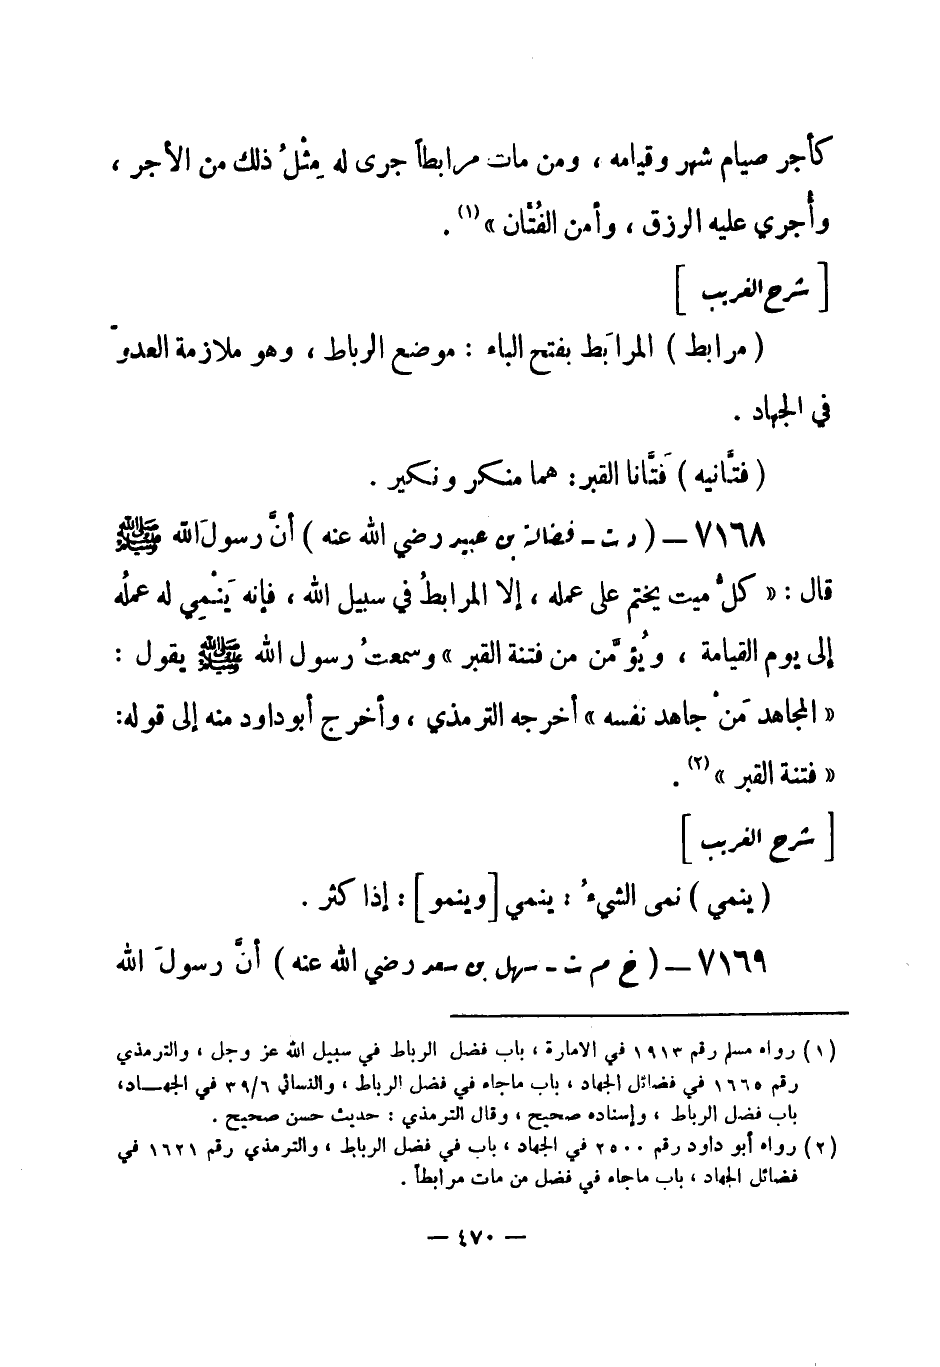 كأجر صيام شهر وقيامه ، ومن مات مرابطاً جرى له مِثْلُ ذلك من الأجر ،
وأُجري عليه الرزق ، وأمن الفُتَّان » (١) .
[ شرح الغريب ]
( مرابط ) المرابَط بفتح الباء : موضع الرباط ، وهو ملازمة العدوّ
في الجهاد .
( فتَّانيه ) فَتَّانا القبر: هما منكر ونكير .
٧١٦٨ – ( د ت - فضالة بن عبيد رضي الله عنه ) أنَّ رسولَ الله ﷺ
قال : « كلُّ ميت يختم على عمله ، إلا المرابطُ في سبيل الله ، فإنه يَنْمِي له عملُه
إلى يوم القيامة ، ويُؤمَّن من فتنة القبر » وسمعتُ رسول الله ﷺ يقول :
« المجاهد مَنْ جاهد نفسه » أخرجه الترمذي ، وأخرج أبو داود منه إلى قوله:
« فتنة القبر » (٢) .
[ شرح الغريب ]
( ينمي ) نمى الشيءُ : ينمي [وينمو] : إذا كثر .
٧١٦٩ – ( خ م ت - سهل بن سعد رضي الله عنه ) أنَّ رسولَ الله
(١) رواه مسلم رقم ١٩١٣ في الامارة ، باب فضل الرباط في سبيل الله عز وجل ، والترمذي
رقم ١٦٦٥ في فضائل الجهاد ، باب ماجاء في فضل الرباط ، والنسائي ٣٩/٦ في الجهـــاد،
باب فضل الرباط ، وإسناده صحيح ، وقال الترمذي : حديث حسن صحيح .
(٢) رواه أبو داود رقم ٢٥٠٠ في الجهاد ، باب في فضل الرباط ، والترمذي رقم ١٦٢١ في
فضائل الجهاد ، باب ماجاء في فضل من مات مرابطاً .
– ٤٧٠ –